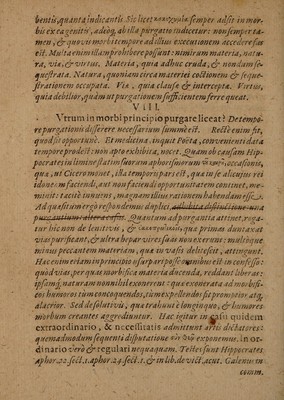 bentis, quanta indicantis. Sic licet semper adsit in mor-
bis ex ea genitis, adeoq, ab illa purgatio indicetur: non semper ta-
men, & quovis morbi tempore ad illius executionem accedere fas
est. Multa enim illam prohibere possunt: nimirum materia, natu-
ra, via, & virtus. Materia, quia adhuc cruda, & nondum se-
questrata. Natura, quoniam circa materiei coctionem & seque-
strationem occupata. Via, quia clausæ & intercepta. Virtus,
quia debilior, quàm ut purgationem sufficientem ferre queat.
VIII.
Utrum in morbi principio purgare liceat? De tempo-
re purgationis disserere necessarium summè est. Rectè enim fit,
quod fit opportunè. Et medicina, inquit Poëta, convenienti data
tempore prodest: non apto exhibita, nocet. Quam ob causam Hip-
pocrates in limine in suorum aphorismorum occasionis,
quæ, ut Cicero monet, ista temporis pars est, quæ in se alicujus rei
idoneam faciendi, aut non faciendi opportunitatem continet, me-
minit: tacitè innuens, magnam illius rationem habendam esse.
Ad quæstionem ergo respondemus dupliciter
Quantum ad purgantia attinet, rega-
tur hic non de lenitivis, & quæ primas duntaxat
vias purificant, & ultra hepar vires suas non exerunt: multoque
minus peccantem materiam, quæ in vasis delitescit, attingunt.
Hac enim etiam in principio usurpari posse omnibus est in confesso:
quòd vias, per quas morbifica materia ducenda, reddant liberas:
ipsamq; naturam nonnihil exonerent: quæ exonerata ad morbifi-
cos humores tum concoquendos, tum expellendos fit promptior atq;
alacrior. Sed de purgantibus, quæ trahunt è longinquo, & humores
morbum creantes aggrediuntur. Hac igitur in casu quidem
extraordinario, & necessitatis admittunt artis dictatores:
quemadmodum sequenti disputatione exponemus. in or-
dinario verò & regulari nequaquam. Testes sunt Hippocrates
aphor. 22. sect. 1. aphor. 24. sect. 1. & in lib. de vict. acut. Galenus in
comm.